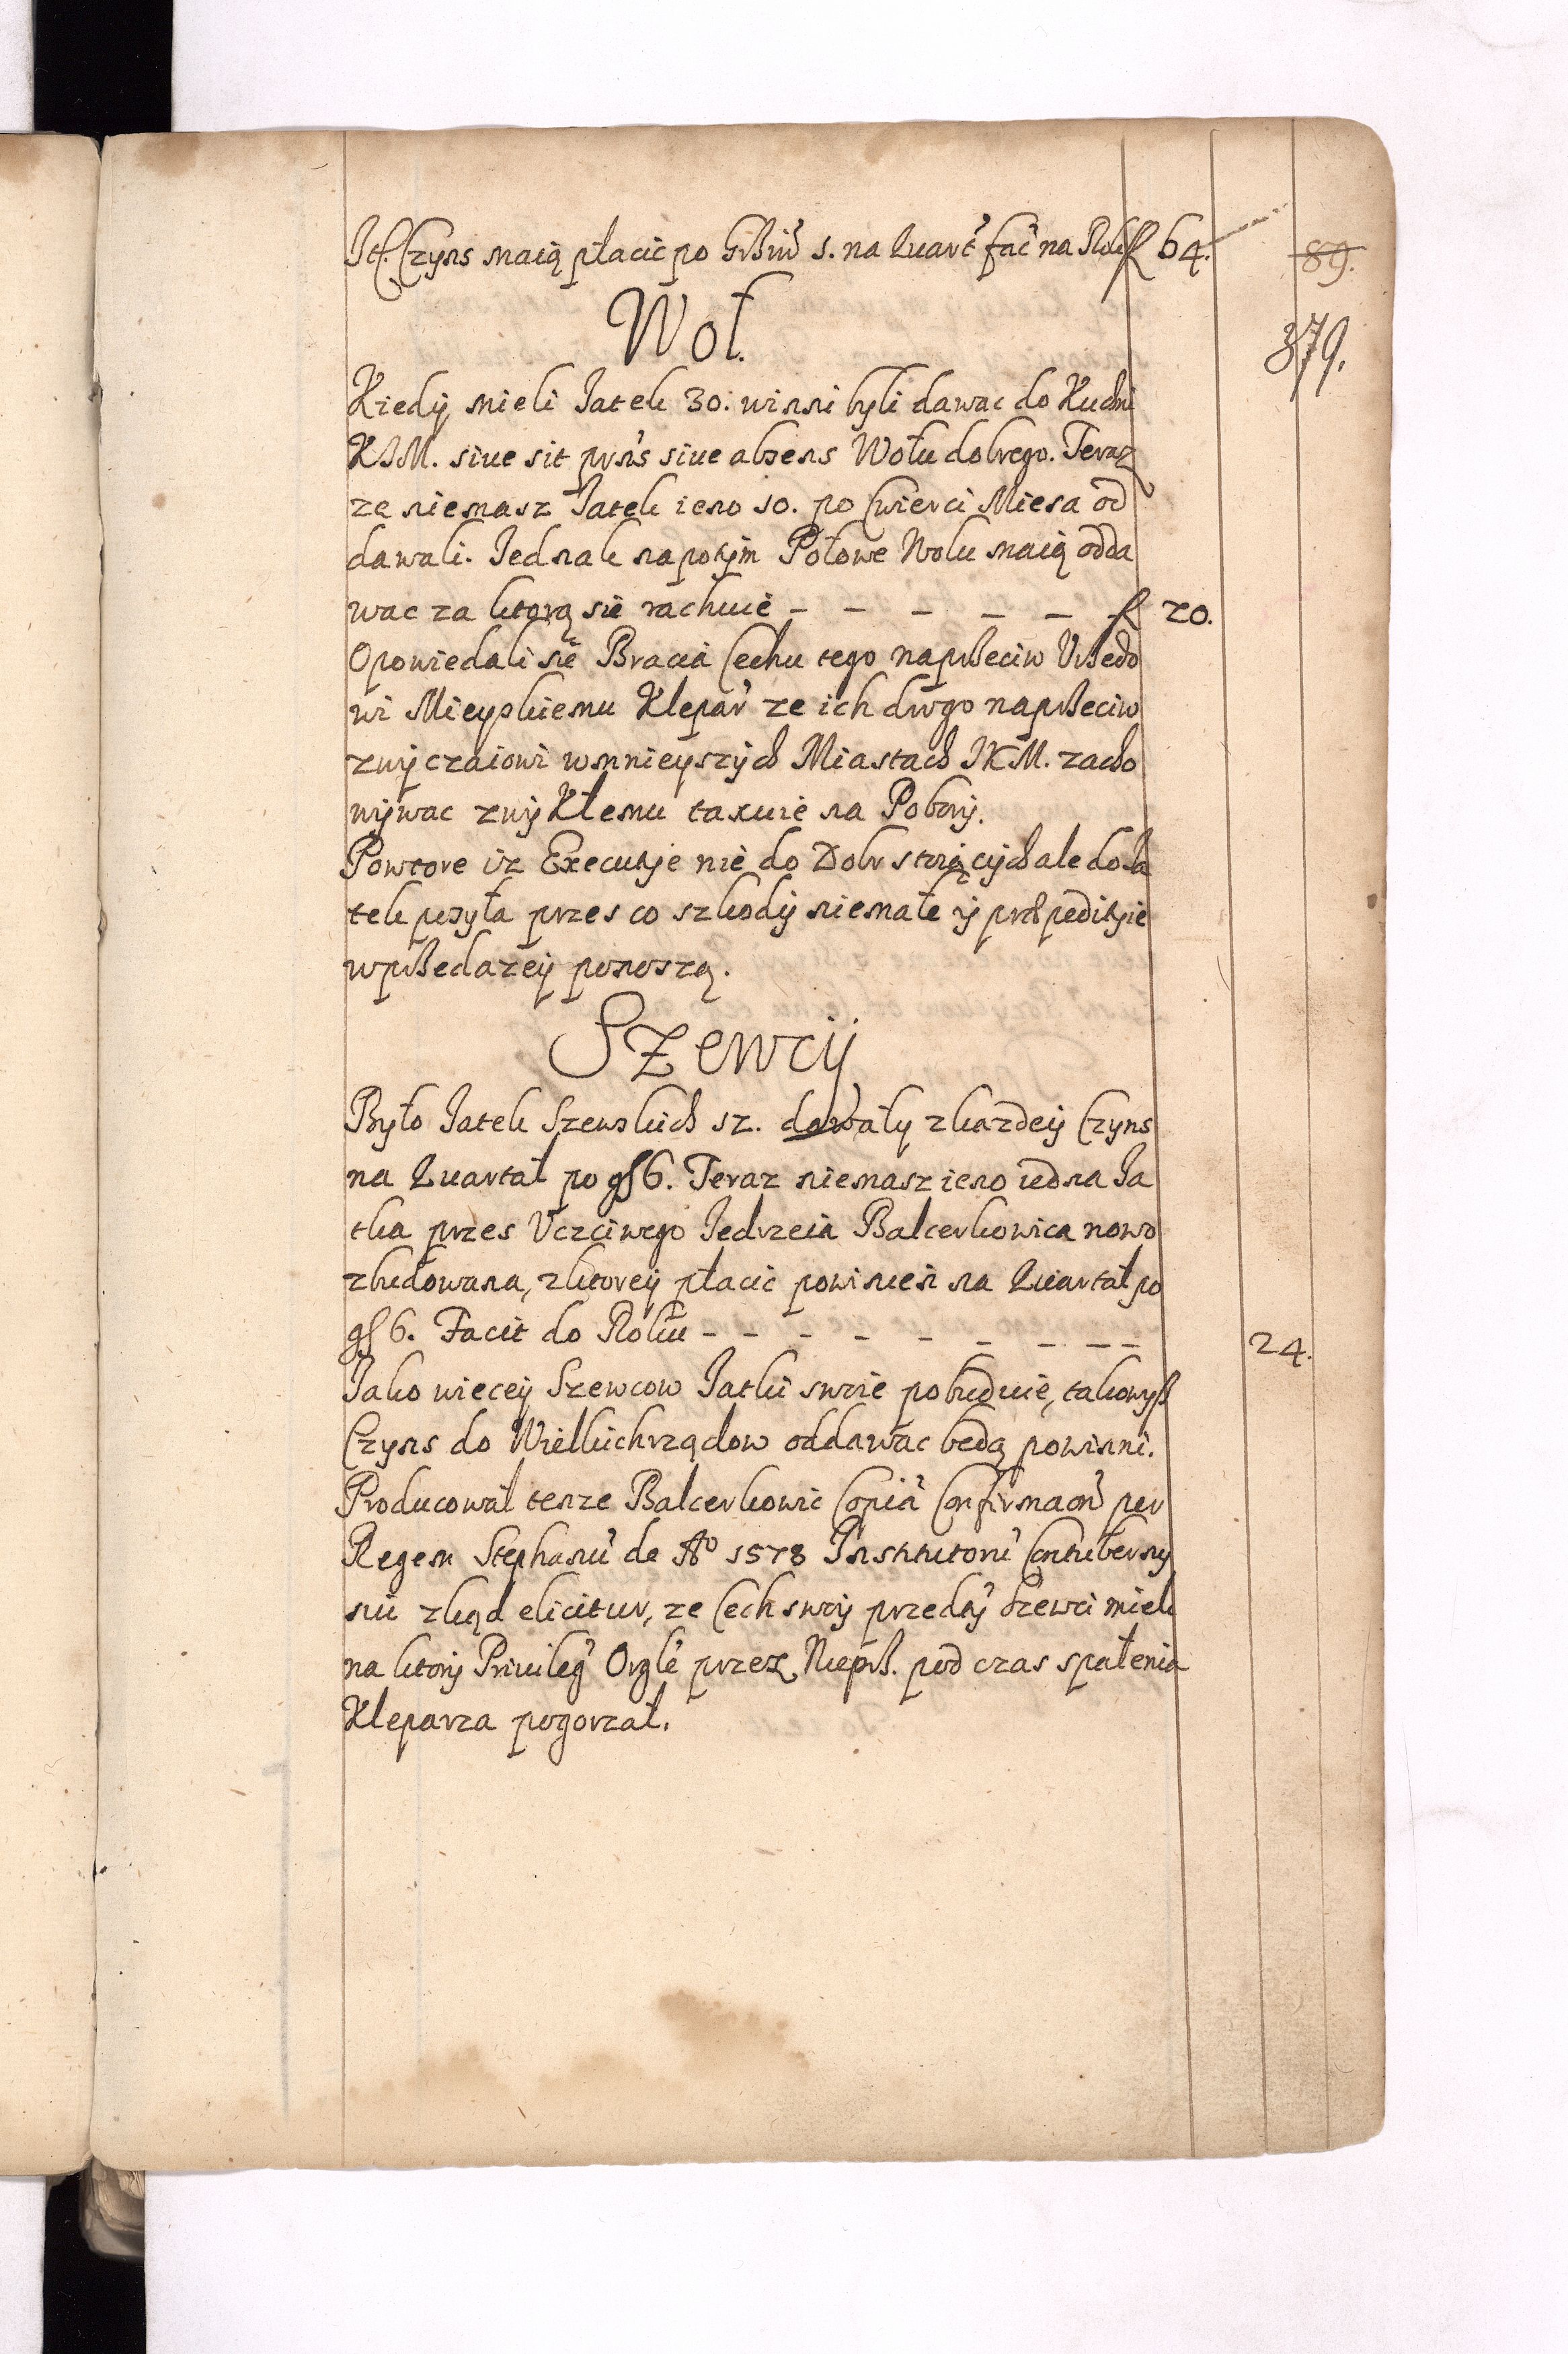 Itē. Czyns maią płacic po Grziw̃ 1. na Quart̃ fac̃ na Rok fl 64.
89.
379.
Woł.
Kiedy mieli Iatek 30. winni byli dawac do Kuchni
K.I.M. siue sit prn̄s siue absens Wołu dobrego. Teraz
ze niemasz Iatek ieno 10. po Cwierci Miesa od
dawali. Iednak napotym Połowe Wołu maią odda
wac za ktorą sie rachuie – – – – – fl 20.
Opowiedali sie Bracia Cechu tego naprzeciw Vrzedo
wi Mieyskiemu Klepar̃ ze ich drogo naprzeciw
zwyczaiowi w mnieyszych Miastach IKM. zacho
wywac zwykłemu taxuie na Pobory.
Powtore iz Executyie nie do Dobr stoiących ale do Ia
tek posyła przes co szkody niemałe y præpedityie
w przedazey ponoszą.
Szewcy
Było Iatek Szewskich 12. dawały z kazdey Czyns
na Quartał po gſ 6. Teraz niemasz ieno iedna Ia
tka przes Vczciwego Iedrzeia Balcerkowica nowo
zbudowana, z ktorey płacic powinien na Quartał po
gſ 6. Facit do Roku – – – – – – – – 24.
Iako wiecey Szewcow Iatki swoie pobuduie, takowyſz
Czyns do Wielkichrządow oddawac bedą powinni.
Producował tenze Balcerkowic Copią Confirmaon̄ per
Regem Stephanū de A° 1578 Institutonī Contuberny
nii zkąd elicitur, ze Cech swoy przedty Szewci mieli
na ktory Priuileg̃ Orgl̃e przez Nieprz. pod czas spalenia
Kleparza pogorzał.